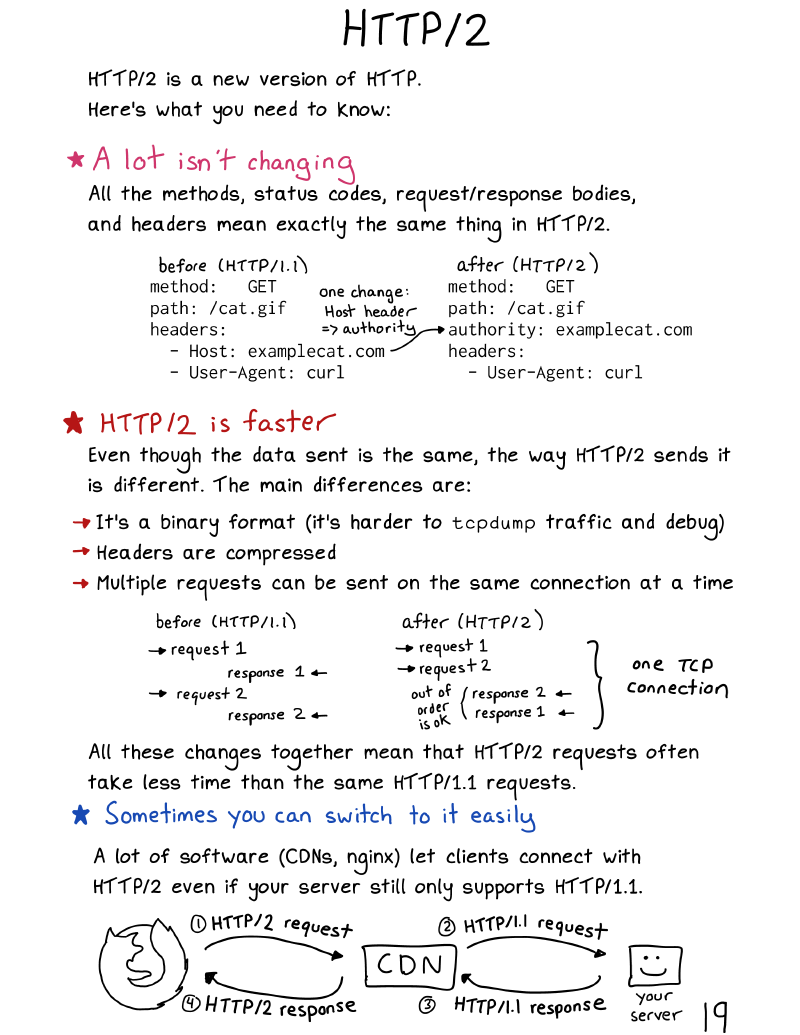 HTTP/2
HTTP/2 is a new version of HTTP.
Here's what you need to know:
★ A lot isn't changing
All the methods, status codes, request/response bodies,
and headers mean exactly the same thing in HTTP/2.
before (HTTP/1.1)
method: GET
path: /cat.gif
headers:
- Host: examplecat.com
- User-Agent: curl
one change:
Host header
=> authority
after (HTTP/2)
method: GET
path: /cat.gif
authority: examplecat.com
headers:
- User-Agent: curl
★ HTTP/2 is faster
Even though the data sent is the same, the way HTTP/2 sends it
is different. The main differences are:
→ It's a binary format (it's harder to tcpdump traffic and debug)
→ Headers are compressed
→ Multiple requests can be sent on the same connection at a time
before (HTTP/1.1)
→ request 1
response 1 ←
→ request 2
response 2 ←
after (HTTP/2)
→ request 1
→ request 2
out of
order
is ok
response 2 ←
response 1 ←
one TCP
connection
All these changes together mean that HTTP/2 requests often
take less time than the same HTTP/1.1 requests.
★ Sometimes you can switch to it easily
A lot of software (CDNs, nginx) let clients connect with
HTTP/2 even if your server still only supports HTTP/1.1.
① HTTP/2 request
② HTTP/1.1 request
CDN
④ HTTP/2 response
③ HTTP/1.1 response
your
server
19